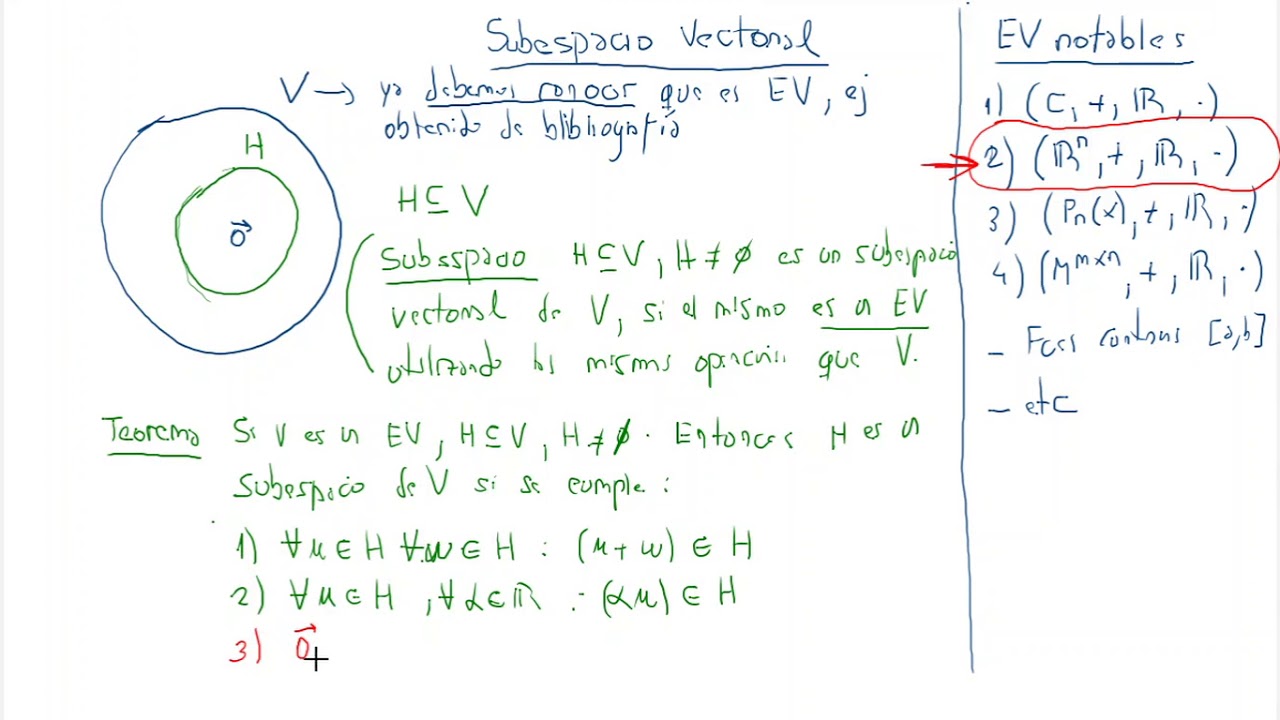 Subespacio Vectorial
V → ya debemos conocer que es EV, ej
obtenido de blibliografía
H
0⃗
H ⊆ V
Subespacio H ⊆ V, H ≠ ∅ es un subespacio
vectorial de V, si el mismo es un EV
utilizando las mismas operaciones que V.
Teorema Si V es un EV, H ⊆ V, H ≠ ∅. Entonces H es un
subespacio de V si se cumple:
1) ∀u ∈ H ∀w ∈ H : (u + w) ∈ H
2) ∀u ∈ H, ∀α ∈ ℝ : (αu) ∈ H
3) 0⃗
EV notables
1) (C, +, ℝ, ·)
2) (ℝⁿ, +, ℝ, ·)
3) (Pn(x), +, ℝ, ·)
4) (M^{m×n}, +, ℝ, ·)
- Fces continuas [a,b]
- etc